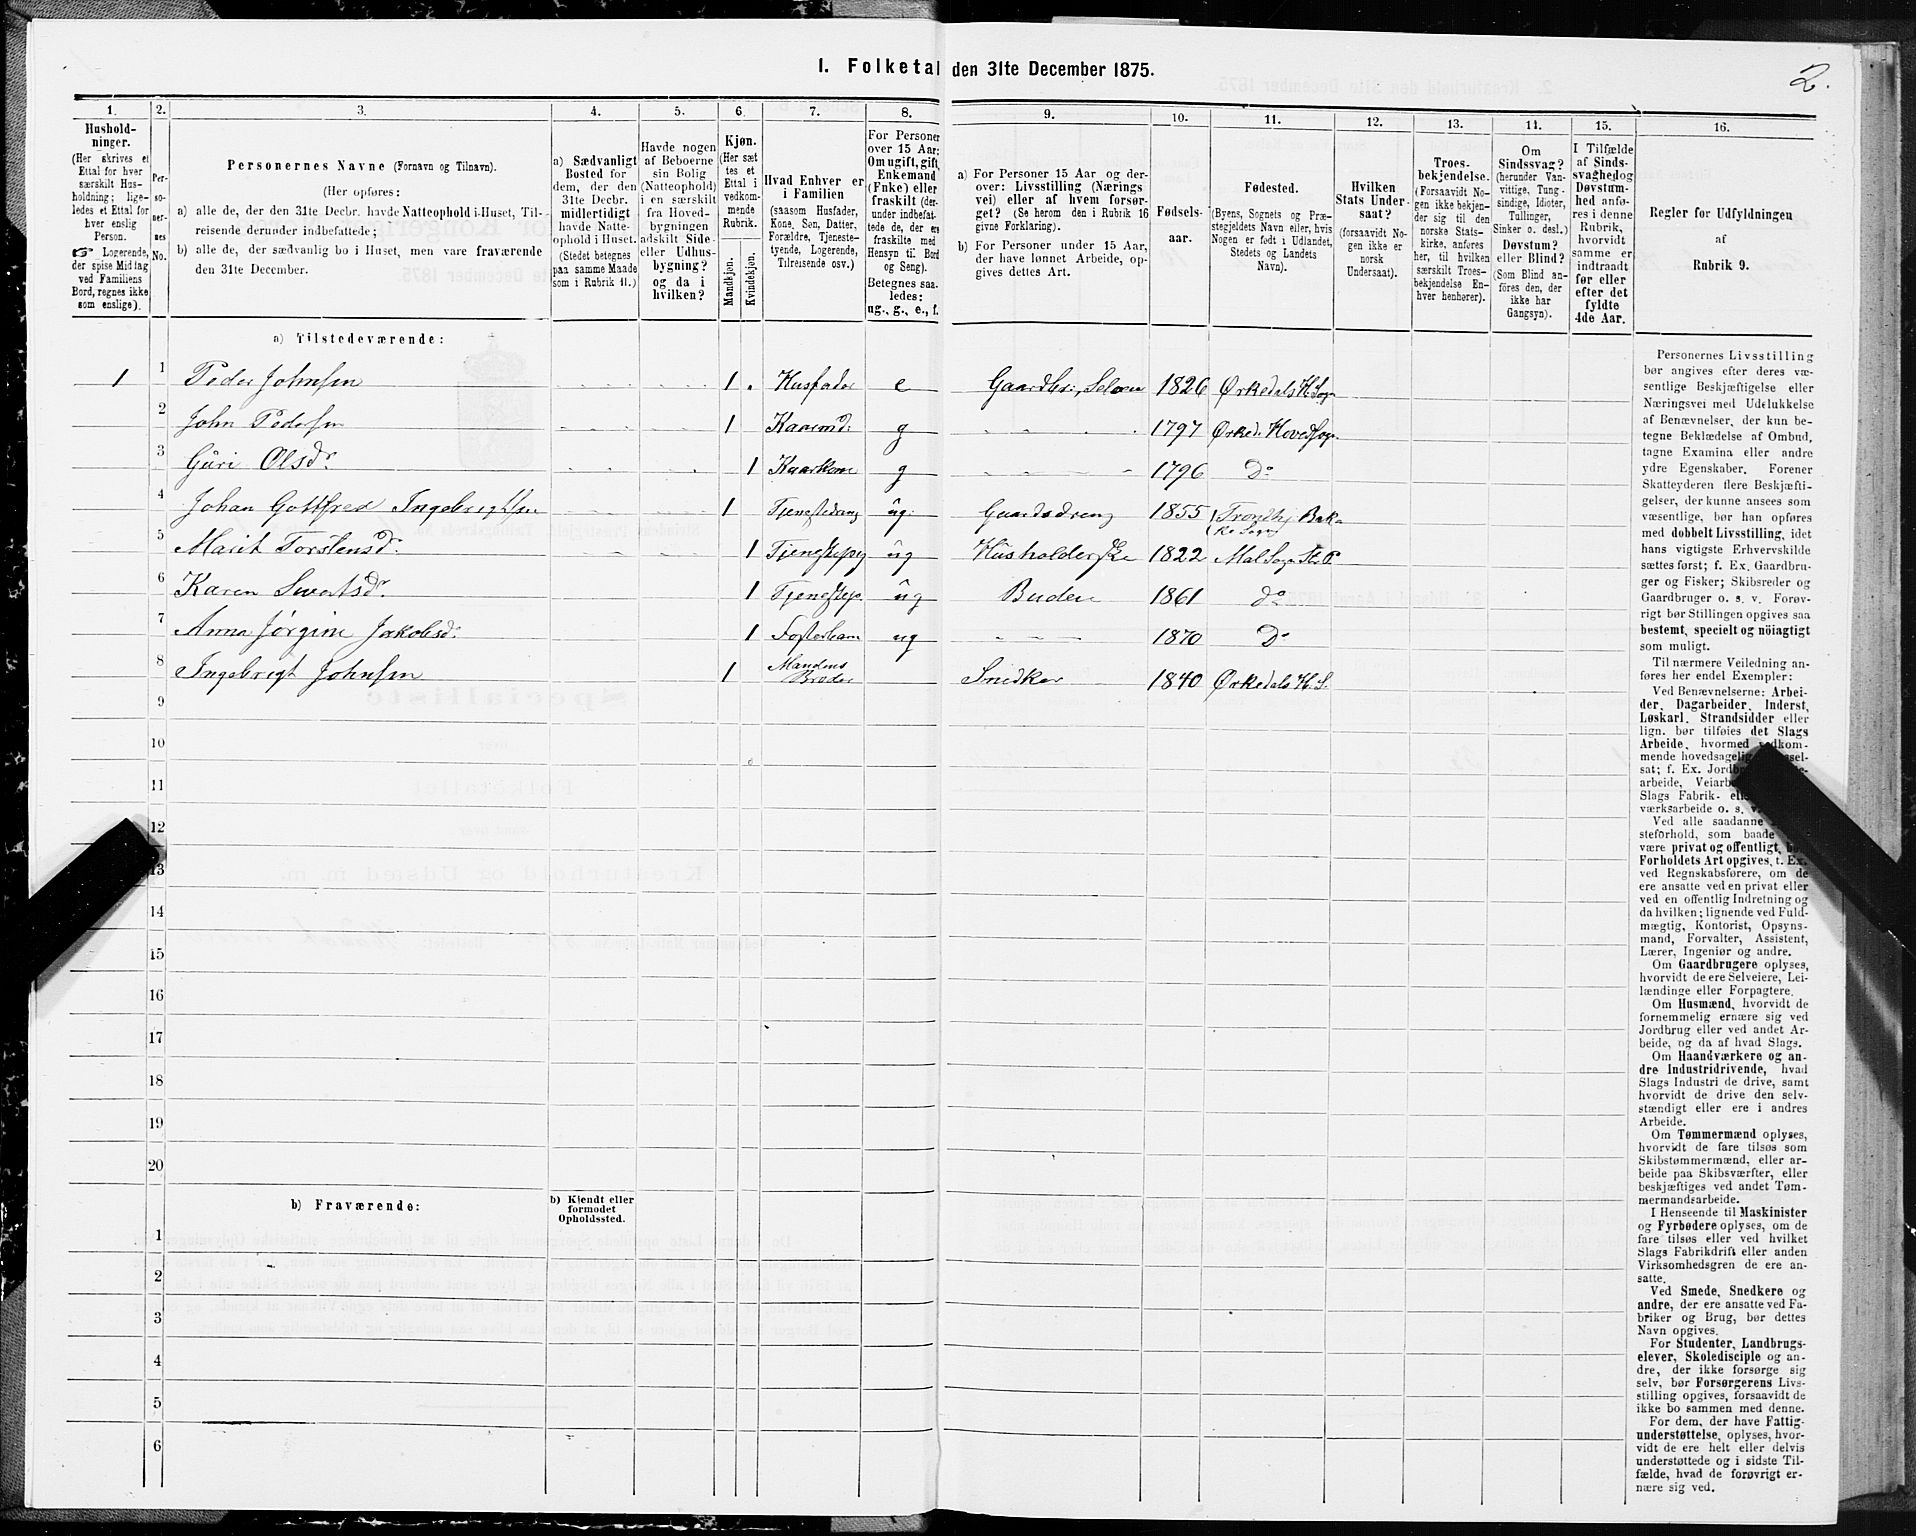 1. Folketal den 31te December 1875.
2.
1.
2.
3.
4.
5.
6.
7.
8.
9.
10.
11.
12.
13.
14.
15.
16.
Hushold-
ninger.
(Her skrives et
Ettal for hver
særskilt Hus-
holdning; lige-
ledes et Ettal for
hver enslig
Person.
☞ Logerende,
der spise Middag
ved Familiens
Bord, regnes ikke
som enslige).
Per-
so-
ner-
nes
No.
Personernes Navne (Fornavn og Tilnavn).
(Her opføres:
a) alle de, der den 31te Decbr. havde Natteophold i Huset, Til-
reisende derunder indbefattede;
b) alle de, der sædvanlig bo i Huset, men vare fraværende
den 31te December.
a) Sædvanligt
Bosted for
dem, der den
31te Decbr.
midlertidigt
havde Natte-
ophold i Huset.
(Stedet betegnes
paa samme Maade
som i Rubrik 11.)
Havde nogen
af Beboerne
sin Bolig
(Natteophold)
i en særskilt
fra Hoved-
bygningen
adskilt Side-
eller Udhus-
bygning?
og da i
hvilken?
Kjøn.
(Her sæt-
tes et
Ettal i
vedkom-
mende
Rubrik.
Mandkjøn.
Kvindekjøn.
Hvad Enhver er
i Familien
(saasom Husfader,
Kone, Søn, Datter,
Forældre, Tjeneste-
tyende, Logerende,
Tilreisende osv.)
For Personer
over 15 Aar:
Om ugift, gift,
Enkemand
(Enke) eller
fraskilt (der-
under indbefat-
tede de, der ere
fraskilte med
Hensyn til Bord
og Seng).
Betegnes saa-
ledes:
ug., g., e., f.
a) For Personer 15 Aar og der-
over: Livsstilling (Nærings
vei) eller af hvem forsør-
get? (Se herom den i Rubrik 16
givne Forklaring).
b) For Personer under 15 Aar,
der have lønnet Arbeide, op-
gives dettes Art.
Fødsels-
aar.
Fødested.
(Byens, Sognets og Præ-
stegjeldets Navn eller, hvis
Nogen er født i Udlandet,
Stedets og Landets
Navn).
Hvilken
Stats Under-
saat?
(forsaavidt No-
gen ikke er
norsk
Undersaat).
Troes-
bekjendelse.
(Forsaavidt No-
gen ikke bekjen-
der sig til den
norske Stats-
kirke, anføres
her, til hvilken
særskilt Troes-
bekjendelse En-
hver henhører).
Om
Sindssvag?
(herunder Van-
vittige, Tung-
sindige, Idioter,
Tullinger,
Sinker o. desl.)
Døvstum?
eller Blind?
(Som Blind an-
føres den, der
ikke har
Gangsyn).
I Tilfælde
af Sinds-
svaghed og
Døvstum-
hed anfø-
res i denne
Rubrik,
hvorvidt
samme er
indtraadt
før eller
efter det
fyldte
4de Aar.
Regler for Udfyldningen
af
Rubrik 9.
a) Tilstedeværende:
1 1 Peder Johnsen 1 Husfader e Gaardbr:, Selveier 1826 Ørkedals H. Sogn
2 John Pedersen 1 Kaarmd: g 1797 Ørked: Hovedsogn
3 Guri Olsdr. 1 Kaarkone g 1796 Do
4 Johan Gottfred Ingebrigtsen 1 Tjenestedreng ug. Gaardsdreng 1855 Trondhj Bak-
ke Sogn
5 Marit Torstensdr. 1 Tjenestepig ug Husholderske 1822 Mal Sogn St. P
6 Karen Sivertsdr. 1 Tjenestep. ug Budeie 1861 do
7 Anna Jørgine Jakobsd. 1 Fosterbarn ug 1870 Do
8 Ingebrigt Johnsen 1 Mandens
Broder Snedker 1840 Ørkedals H. S.
9
10
11
12
13
14
15
16
17
18
19
20
b) Fraværende:
b) Kjendt eller
formodet
Opholdssted.
1
2
3
4
5
6
Personernes Livsstilling
bør angives efter deres væ-
sentlige Beskjæftigelse eller
Næringsvei med Udelukkelse
af Benævnelser, der kun be-
tegne Beklædelse af Ombud,
tagne Examina eller andre
ydre Egenskaber. Forener
Skatteyderen flere Beskjæfti-
gelser, der kunne ansees som
væsentlige, bør han opføres
med dobbelt Livsstilling, idet
hans vigtigste Erhvervskilde
sættes først; f. Ex. Gaardbru-
ger og Fisker; Skibsreder og
Gaardbruger o. s. v. Forøv-
rigt bør Stillingen opgives saa
bestemt, specielt og nöiagtigt
som muligt.
Til nærmere Veiledning an-
føres her endel Exempler:
Ved Benævnelserne: Arbei-
der, Dagarbeider, Inderst,
Løskarl, Strandsidder eller
lign. bør tilføies det Slags
Arbeide, hvormed vedkom-
mende hovedsagelig
sat; f. Ex.
arbeide,
Slags Fabrik-
værksarbeide o. s.
Ved alle saadanne
steforhold, som baade
være privat og offentligt, bør
Forholdets Art opgives, t. Ex.
ved Regnskabsførere, om de
ere ansatte ved en privat eller
ved en offentlig Indretning og
da hvilken; lignende ved Fuld-
mægtig, Kontorist, Opsyns-
mand, Forvalter, Assistent,
Lærer, Ingeniør og andre.
Om Gaardbrugere oplyses,
hvorvidt de ere Selveiere, Lei-
lændinge eller Forpagtere.
Om Husmænd, hvorvidt de
fornemmelig ernære sig ved
Jordbrug eller ved andet Ar-
beide, og da af hvad Slags.
Om Haandværkere og an-
dre Industridrivende, hvad
Slags Industri de drive, samt
hvorvidt de drive den selv-
stændigt eller ere i andres
Arbeide.
Om Tømmermænd oplyses,
hvorvidt de fare tilsøs som
Skibstømmermænd, eller ar-
beide paa Skibsværfter, eller
beskjæftiges ved andet Tøm-
mermandsarbeide.
I Henseende til Maskinister
og Fyrbødere oplyses, om de
fare tilsøs eller ved hvilket
Slags Fabrikdrift eller anden
Virksomhedsgren de ere an-
satte.
Ved Smede, Snedkere og
andre, der ere ansatte ved Fa-
briker og Brug, bør dettes
Navn opgives.
For Studenter, Landbrugs-
elever, Skoledisciple og an-
dre, der ikke forsørge sig
selv, bør Forsørgerens Livs-
stilling opgives, forsaavidt de
ikke bo sammen med denne.
For dem, der have Fattig-
understøttelse, oplyses, hvor-
vidt de ere helt eller delvis
understøttede og i sidste Til-
fælde, hvad de forøvrigt er-
nære sig ved.